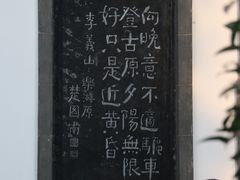 向晚意不適驅車
登古原夕陽無限
好只是近黄昏
李義山 樂游原
楚图南